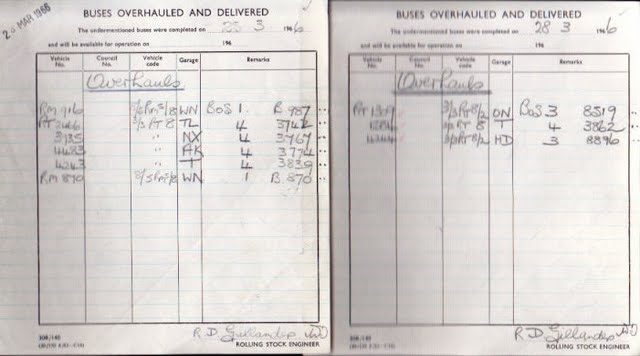 28 MAR 1966
BUSES OVERHAULED AND DELIVERED
The undermentioned buses were completed on 25 3 1966
and will be available for operation on 196
Vehicle No. Council No. Vehicle code Garage Remarks
Overhauls
RM 916 WN BOS 1. B.987
RT TL 4 3742
3135 " NX 4 3767
4483 " AK 4 3774
4243 " T 4 3839
RM 870 WN 1 B.870
R.D. Gillander
ROLLING STOCK ENGINEER
BUSES OVERHAULED AND DELIVERED
The undermentioned buses were completed on 28 3 1966
and will be available for operation on 196
Vehicle No. Council No. Vehicle code Garage Remarks
Overhauls
RT ON BOS 3 8519
T 4 3862
HD 3 8896
R.D. Gillander
ROLLING STOCK ENGINEER